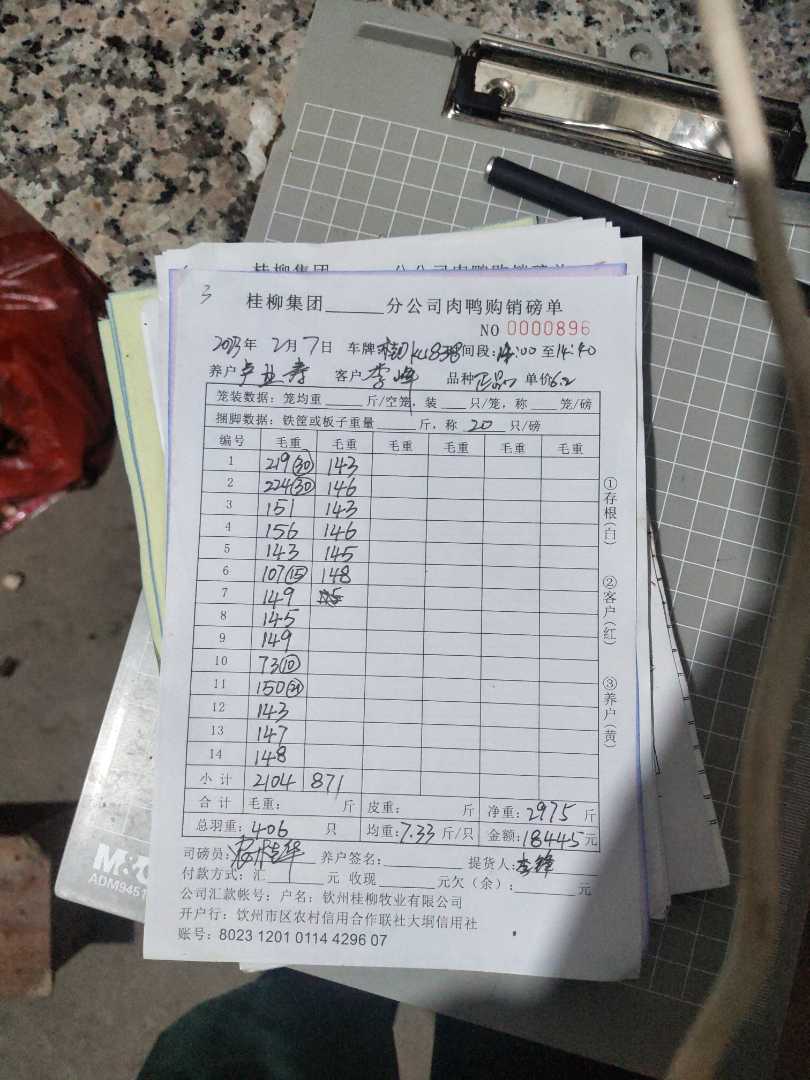 桂柳集团 分公司肉鸭购销磅单
3
桂柳集团______分公司肉鸭购销磅单
NO 0000896
2023年 2月7日 车牌 时间段:14:00至14:40
养户 客户李峰 品种正品 单价6.2
笼装数据:笼均重____斤/空笼,装____只/笼,称____笼/磅
捆脚数据:铁筐或板子重量______斤,称 20 只/磅
编号 毛重 毛重 毛重 毛重 毛重 毛重
1 219(30) 143
2 224(30) 146
3 151 143
4 156 146
5 143 145
6 107(15) 148
7 149
8 145
9 149
10 73(10)
11 150(21)
12 143
13 147
14 148
小计 2104 871
合计 毛重: 斤 皮重: 斤 净重:2975斤
总羽重:406 只 均重:7.33斤/只 金额:18445元
司磅员: 养户签名:______ 提货人:李锋
付款方式:汇______元 收现______元欠(余):______元
公司汇款帐号:户名:钦州桂柳牧业有限公司
开户行:钦州市区农村信用合作联社大垌信用社
账号:8023 1201 0114 4296 07
①存根(白)
②客户(红)
③养户(黄)
M&G
ADM9451